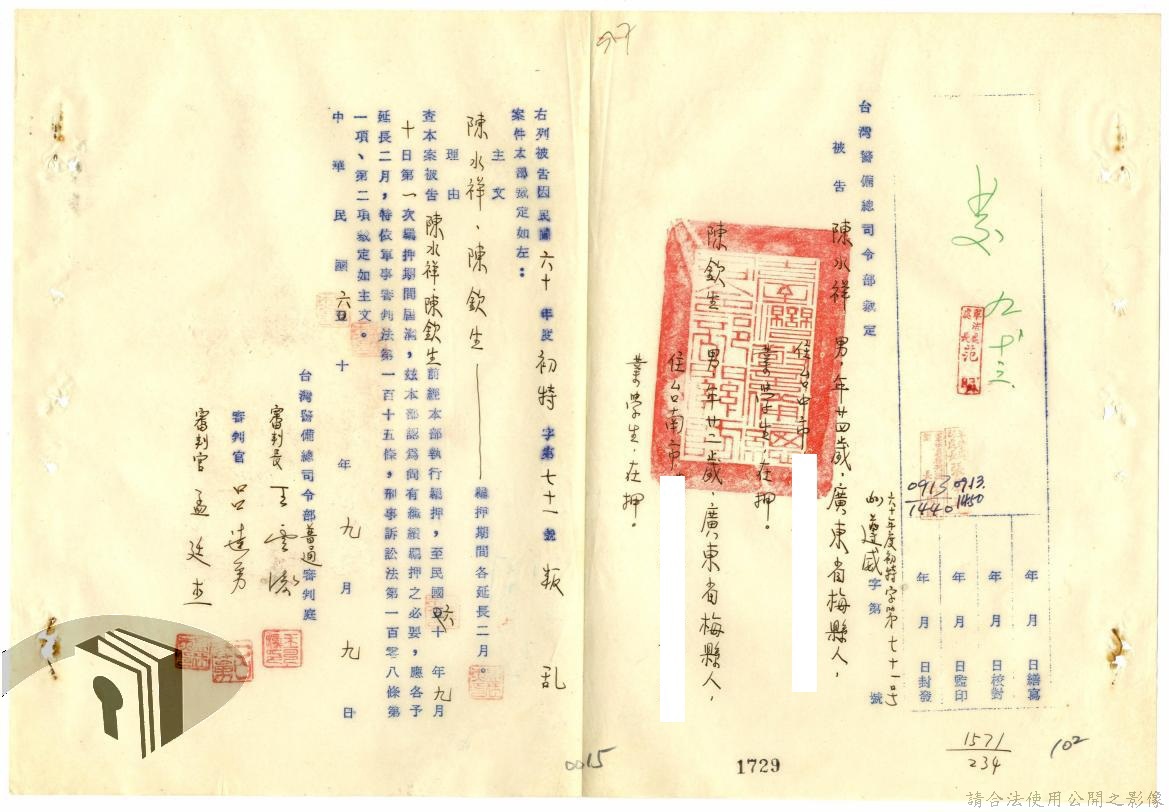 97
年 月 日繕寫
年 月 日校對
年 月 日監印
年 月 日封發
九十三
軍法處處長范明
0913 1440
0913 1450
六十年度初特字第七十一号
字第 號
台灣警備總司令部裁定
被告 陳水祥 男,年廿四歲,廣東省梅縣人,
住台中市
業學生,在押。
陳欽生 男年廿二歲,廣東省梅縣人,
住台南市
業學生,在押。
右列被告因民國六十年度初特字第七十一號叛亂
案件本部裁定如左:
主文
陳水祥、陳欽生 羈押期間各延長二月。
理由
查本案被告陳水祥陳欽生前經本部執行羈押,至民國六十年九月
十日第一次羈押期間屆滿,茲本部認為尚有繼續羈押之必要,應各予
延長二月,特依軍事審判法第一百十五條,刑事訴訟法第一百零八條第
一項、第二項裁定如主文。
中華民國六十年九月九日
台灣警備總司令部普通審判庭
審判長 王雲
審判官
審判官 孟廷杰
1571
234
102
1729
0015
請合法使用公開之影像